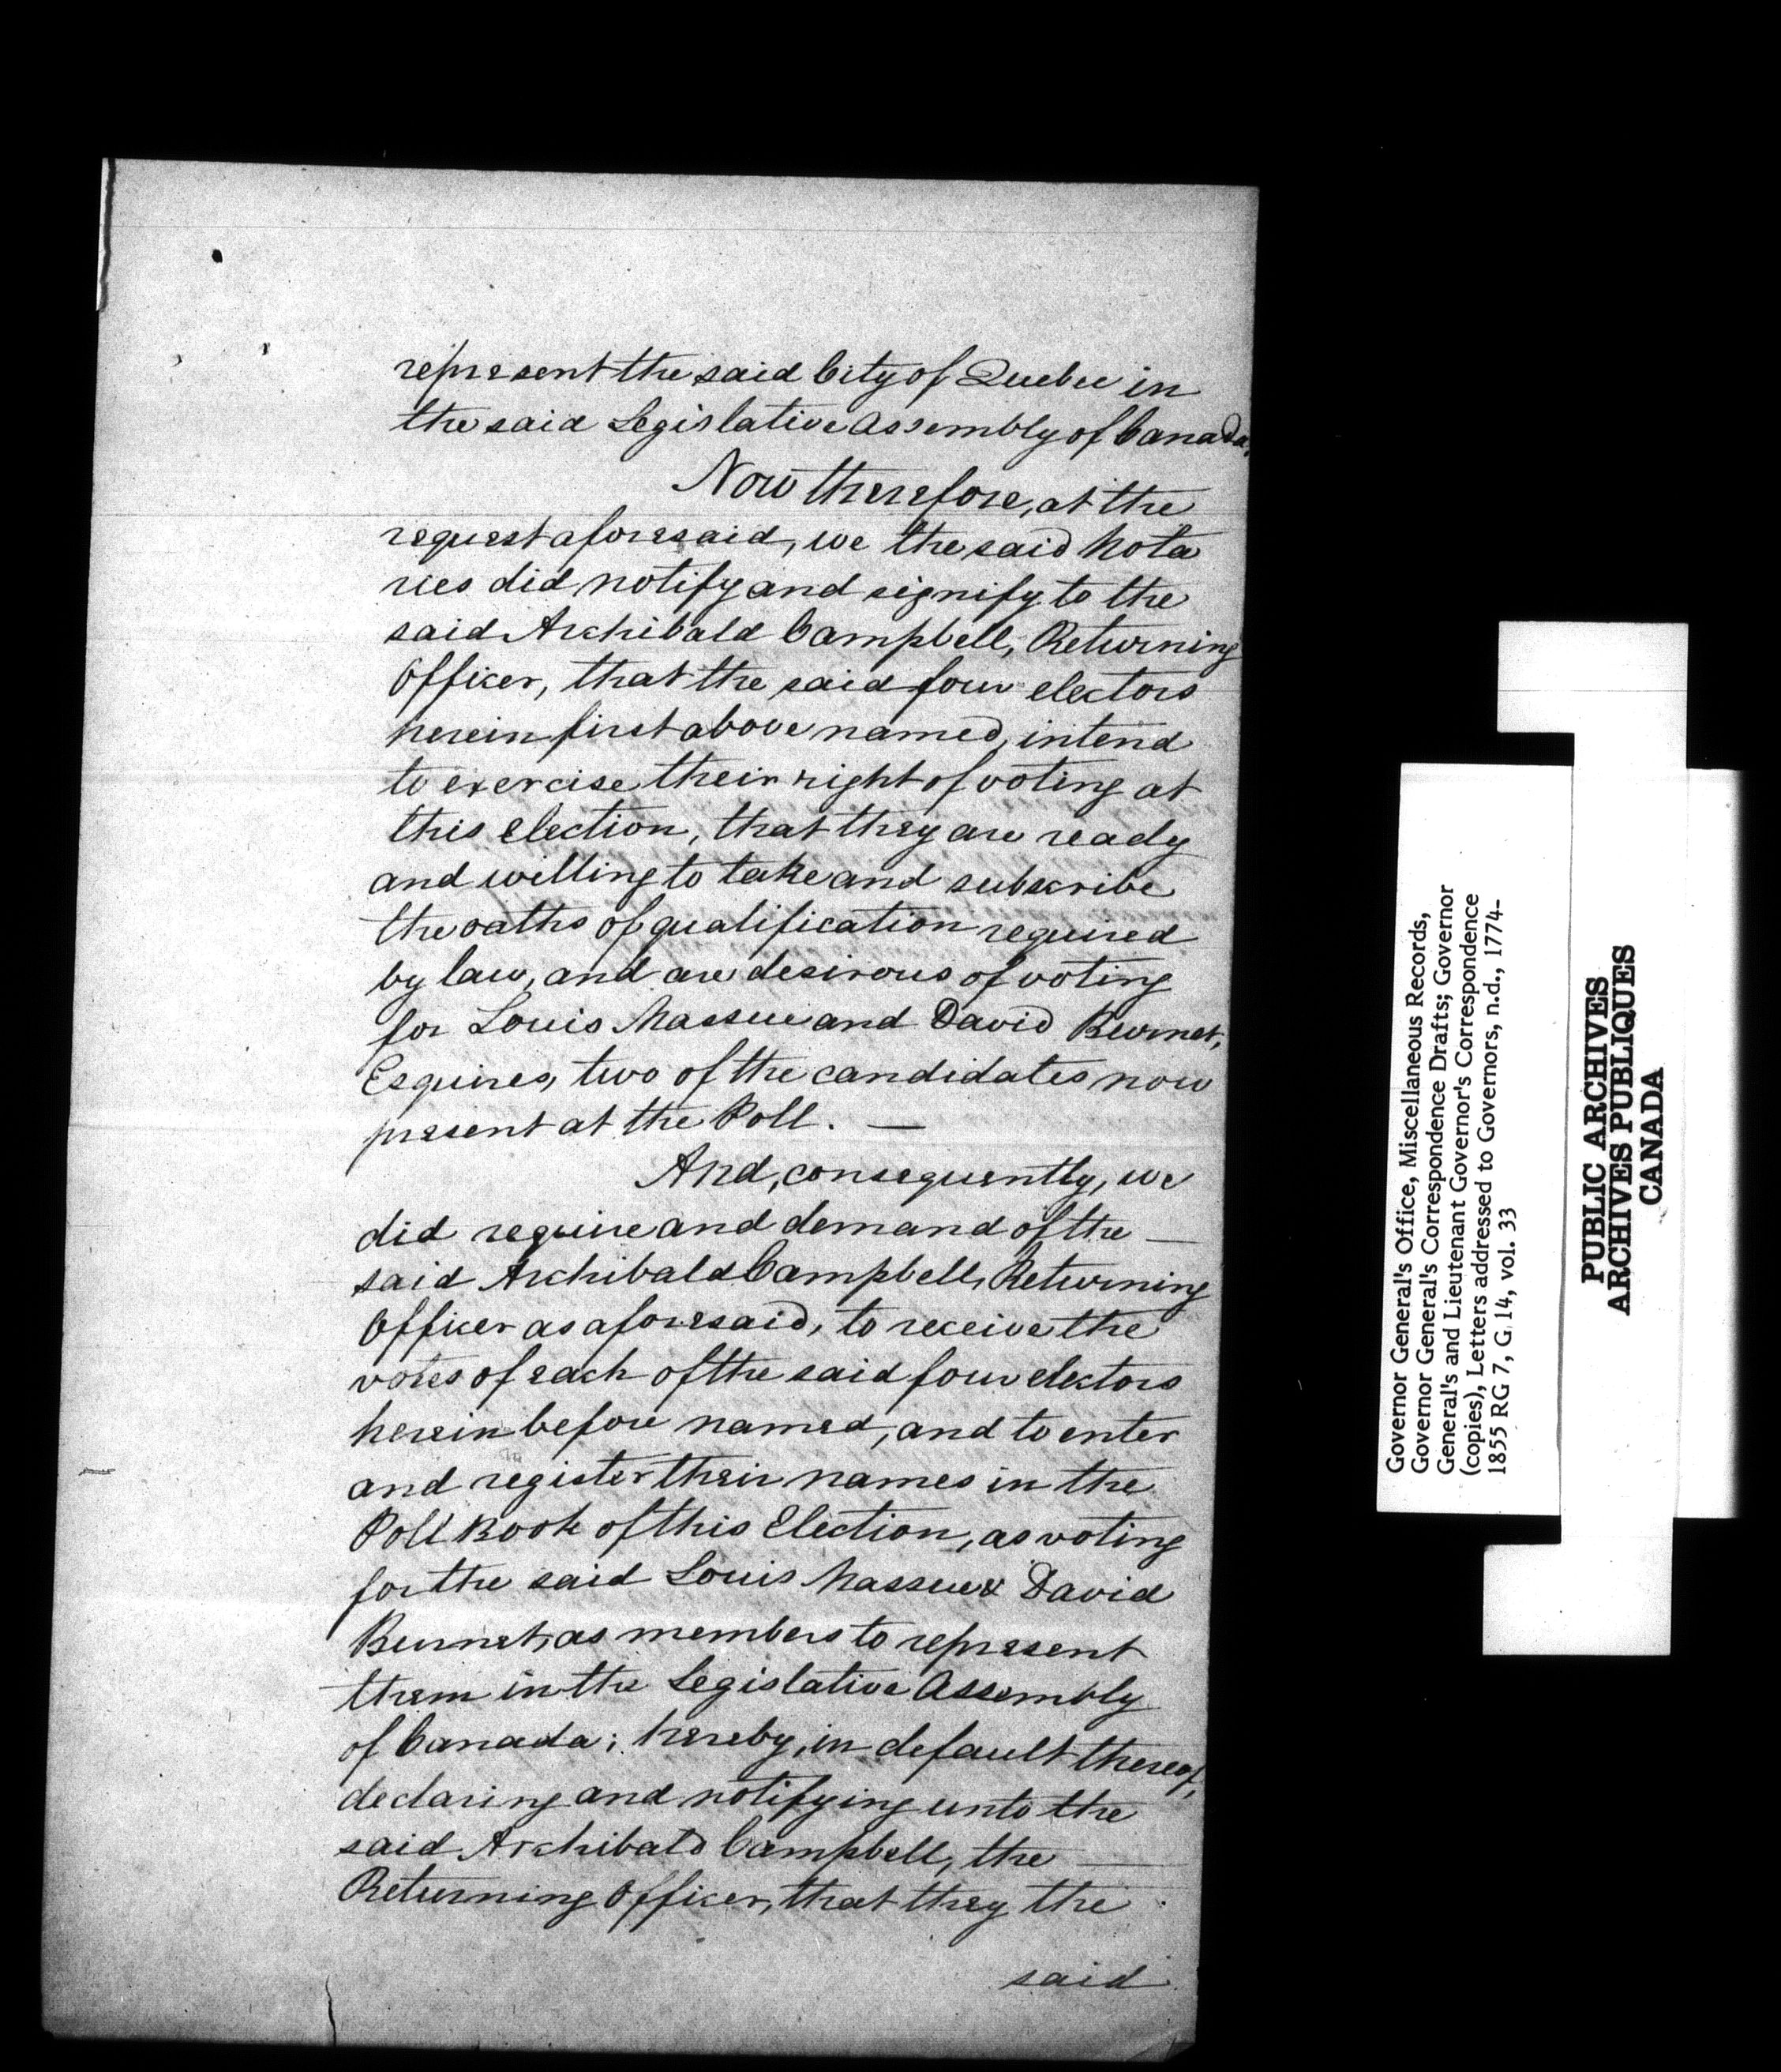 represent the said City of Quebec in
the said Legislative Assembly of Canada,
Now therefore, at the
request aforesaid, we the said Nota
ries did notify and signify to the
said Archibald Campbell, Returning
Officer, that the said four electors
herein first above named, intend
to exercise their right of voting at
this election, that they are ready
and willing to take and subscribe
the oaths of qualification required
by law, and are desirous of voting
for Louis Massue and David Burnet,
Esquires, two of the candidates now
present at the Poll. —
And, consequently, we
did require and demand of the —
said Archibald Campbell, Returning
Officer as aforesaid, to receive the
votes of each of the said four electors
herein before named, and to enter
and register their names in the
Poll Book of this Election, as voting
for the said Louis Massue & David
Burnet, as members to represent
them in the Legislative Assembly
of Canada; hereby, in default thereof,
declaring and notifying unto the
said Archibald Campbell, the —
Returning Officer, that they the
said
Governor General's Office, Miscellaneous Records,
Governor General's Correspondence Drafts; Governor
General's and Lieutenant Governor's Correspondence
(copies), Letters addressed to Governors, n.d., 1774-
1855 RG 7, G 14, vol. 33
PUBLIC ARCHIVES
ARCHIVES PUBLIQUES
CANADA